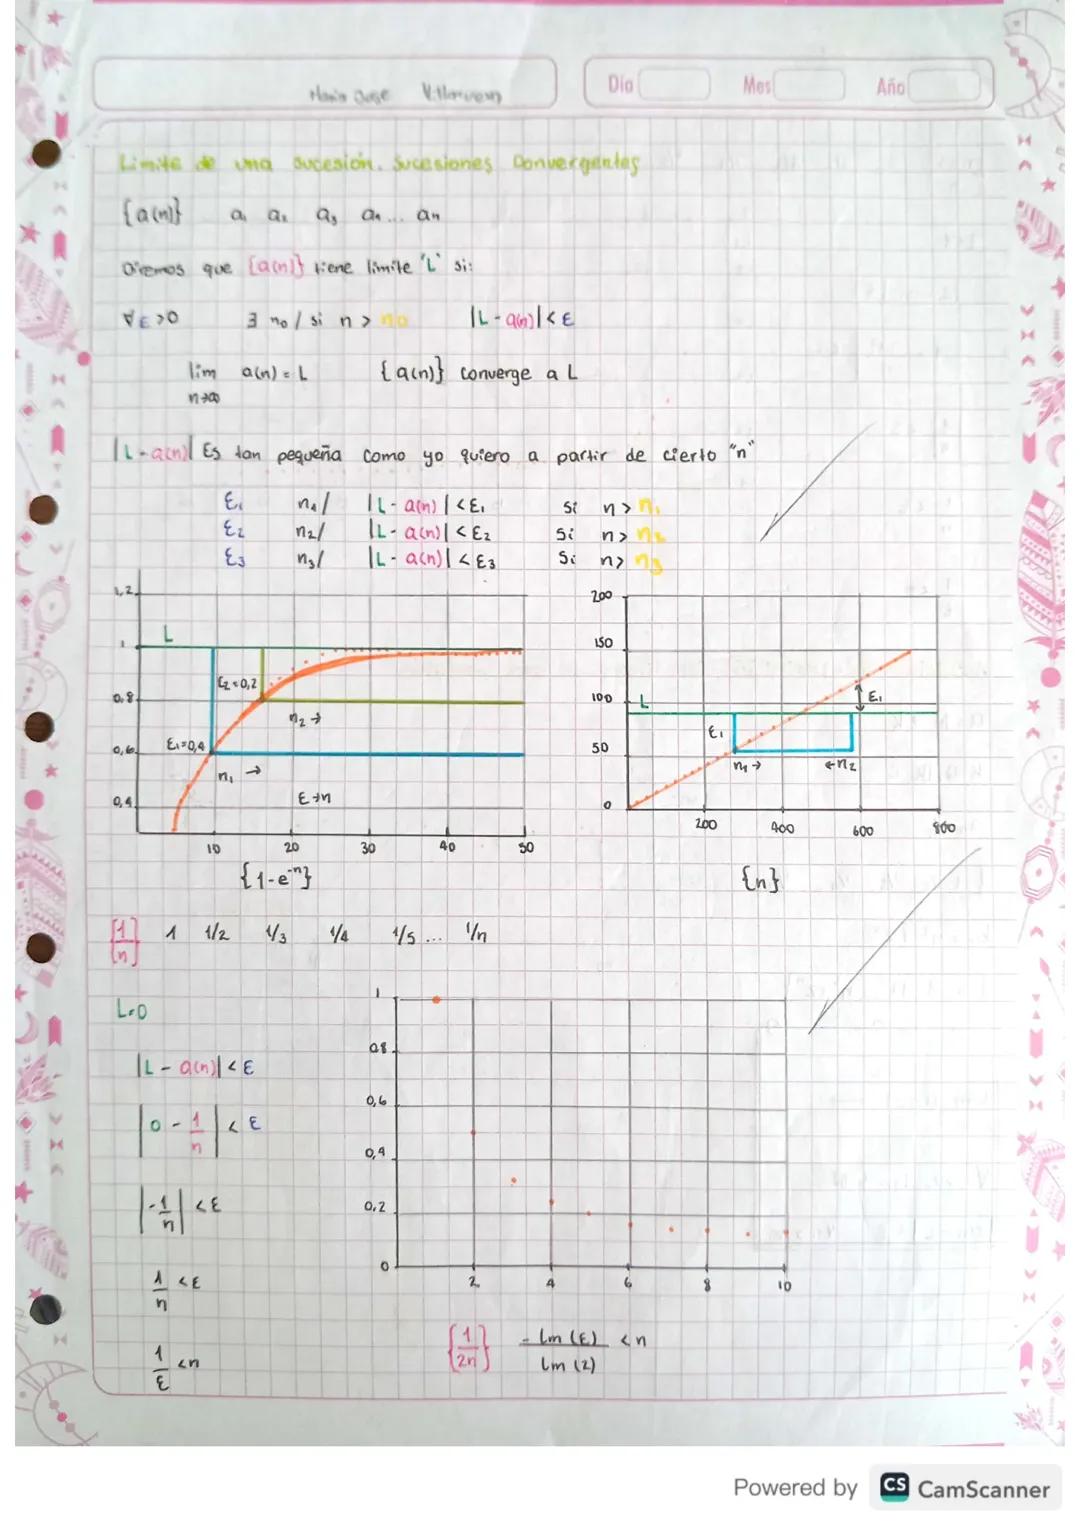 Día Mes Año
Maria Jose
Limite de una sucesión. Sucesiones Convergentes
{a(n)} a₁ a₂ a₃ a₄... an
Diremos que {a(n)} tiene limite 'L' si:
∀ε>0 ∃ n₀ / si n > n₀ |L-a(n)|<ε
lim a(n) = L {a(n)} converge a L
n→∞
|L-a(n)| Es tan pequeña como yo quiero a partir de cierto "n"
ε₁ n₁/ |L-a(n)|<ε₁ si n>n₁
ε₂ n₂/ |L-a(n)|<ε₂ Si n>n₂
ε₃ n₃/ |L-a(n)|<ε₃ Si n>n₃
1,2
1
0,8
0,6
0,4
L
ε₂=0,2
n₂→
ε₁=0,4
n₁ →
ε→n
10 20 30 40 50
{1-e⁻ⁿ}
200
150
100
50
0
L
ε₁
ε₁
n₁→ ←n₂
200 400 600 800
{n}
{1/n} 1 1/2 1/3 1/4 1/5 ... 1/n
L=0
|L-a(n)|<ε
|0-1/n|<ε
|-1/n|<ε
1/n<ε
1/ε<n
1
0.8
0,6
0,4
0,2
0
2 4 6 8 10
{1/2n} -lm(ε)/lm(2) <n
Powered by CS CamScanner